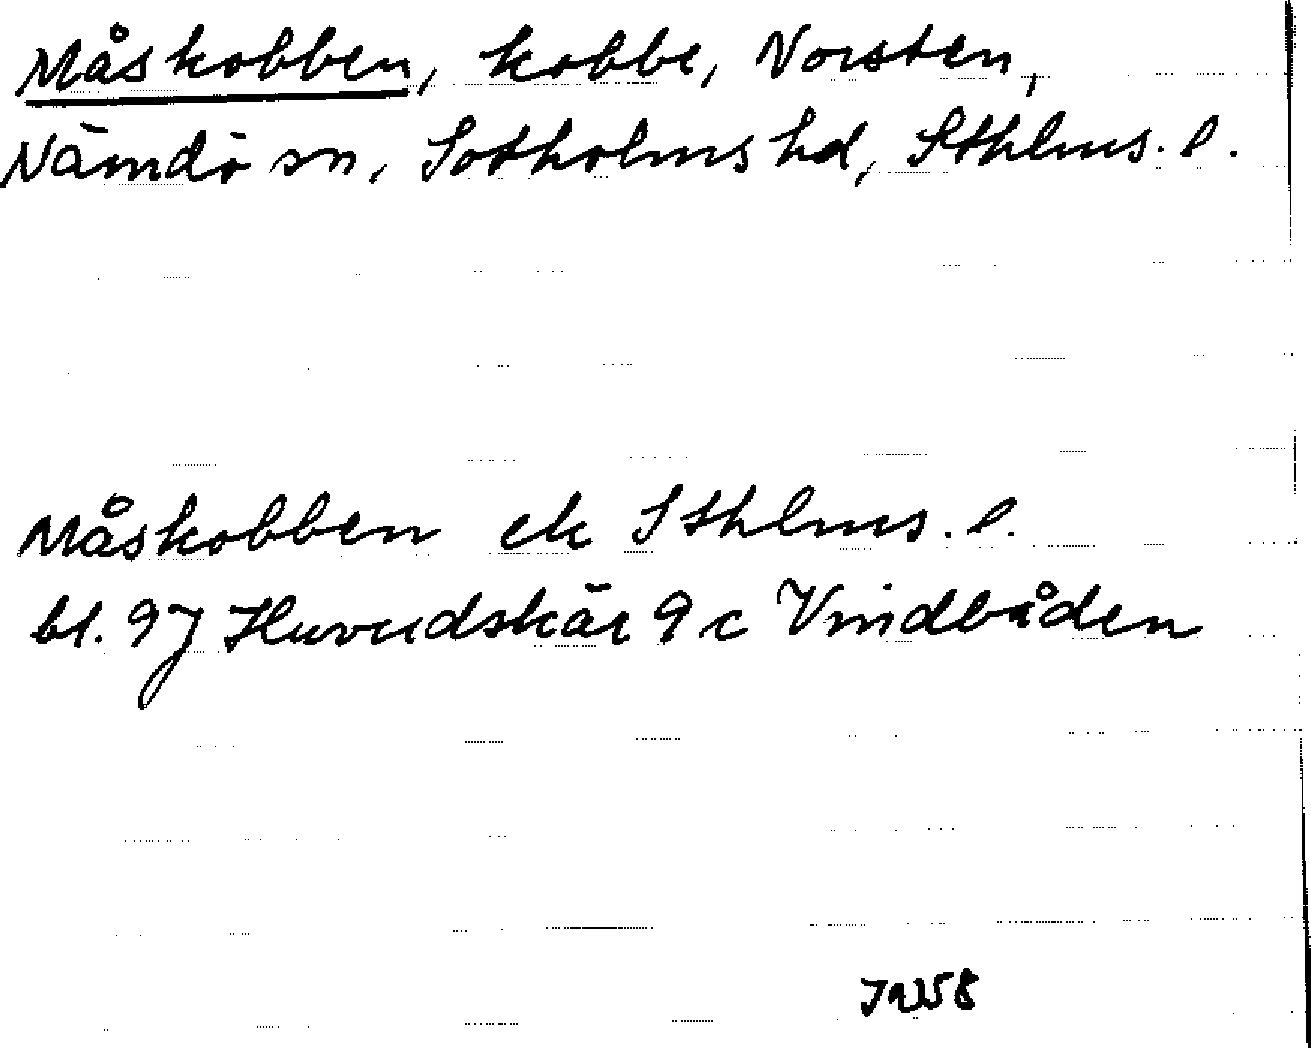 Måskobben, kobbe, Norsten,
Nämdö sn, Sotholms hd, Sthlms. l.
Måskobben ek Sthlms. l.
bl. 97 Huvudskär 9 c Vindbåden